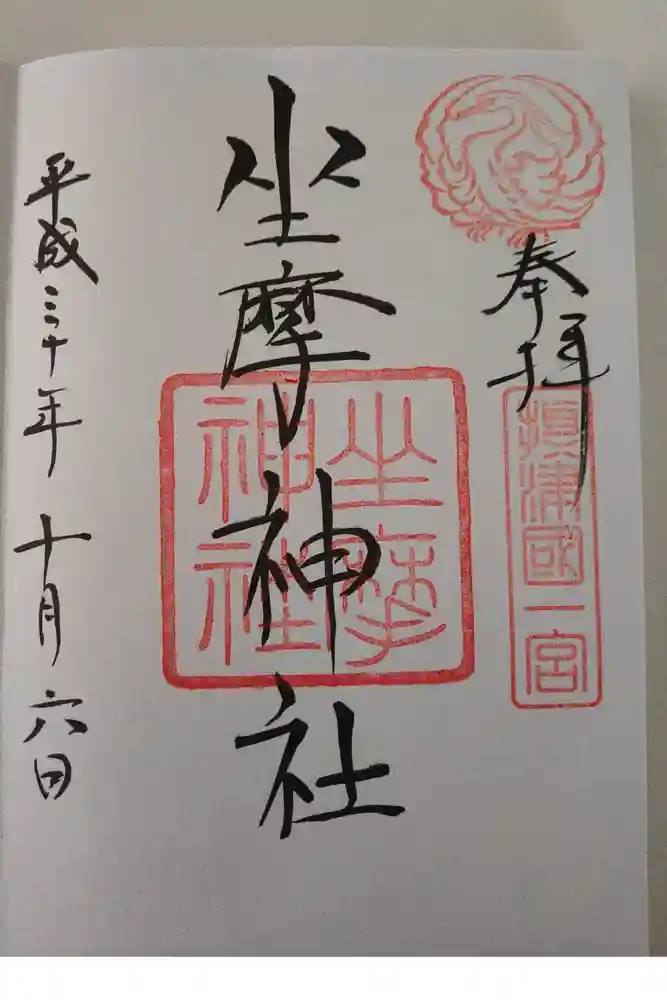 奉拝
摂津國一宮
坐摩神社
坐摩神社
平成三十年十月六日